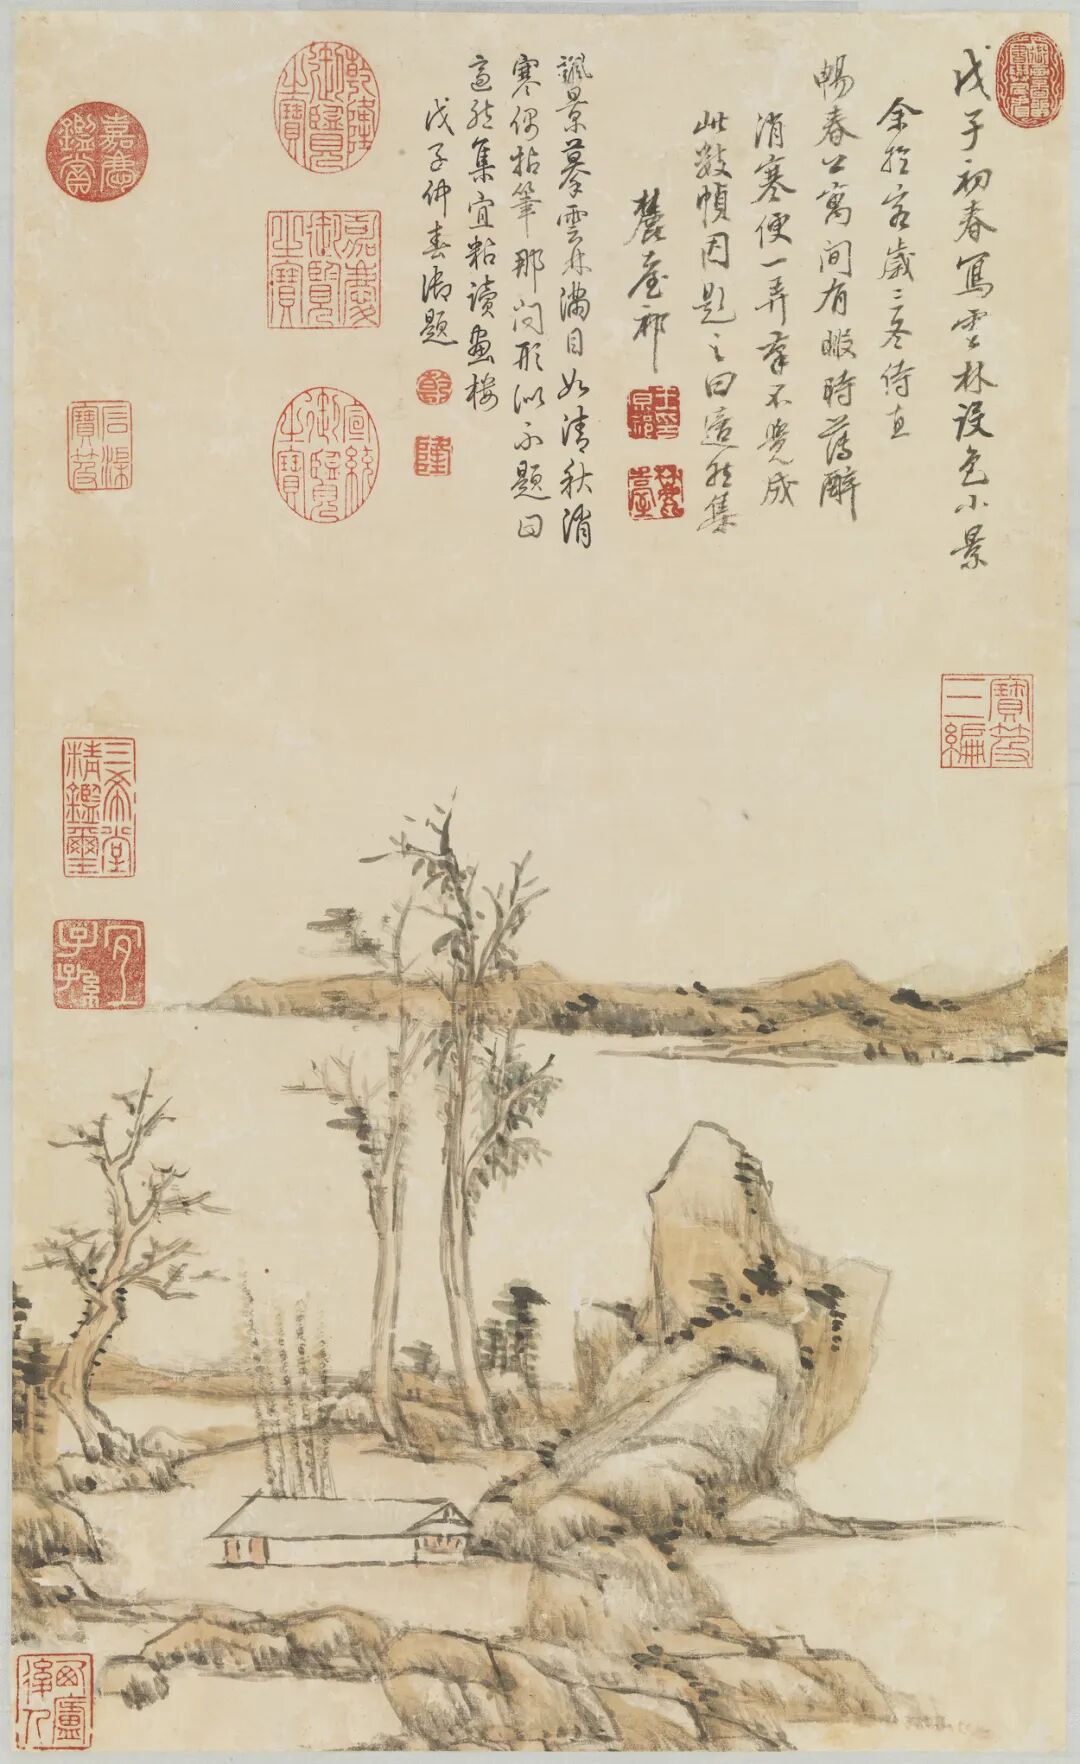 戊子初春寫雲林設色小景
余於客歲三冬侍直
暢春公寓間有暇時薄醉
消寒便一弄筆不覺成
此數幀因題之曰適然集
麓臺祁
王原祁印
麓臺
景摹雲林滿目如清秋消
寒偶拈筆那問形似不題曰
適然集宜粘讀畫樓
戊子仲春御題
乾
隆
乾隆御覽之寶
嘉慶御覽之寶
宣統御覽之寶
嘉慶鑑賞
石渠寶笈
寶笈三編
三希堂精鑑璽
宜子孫
西廬後人